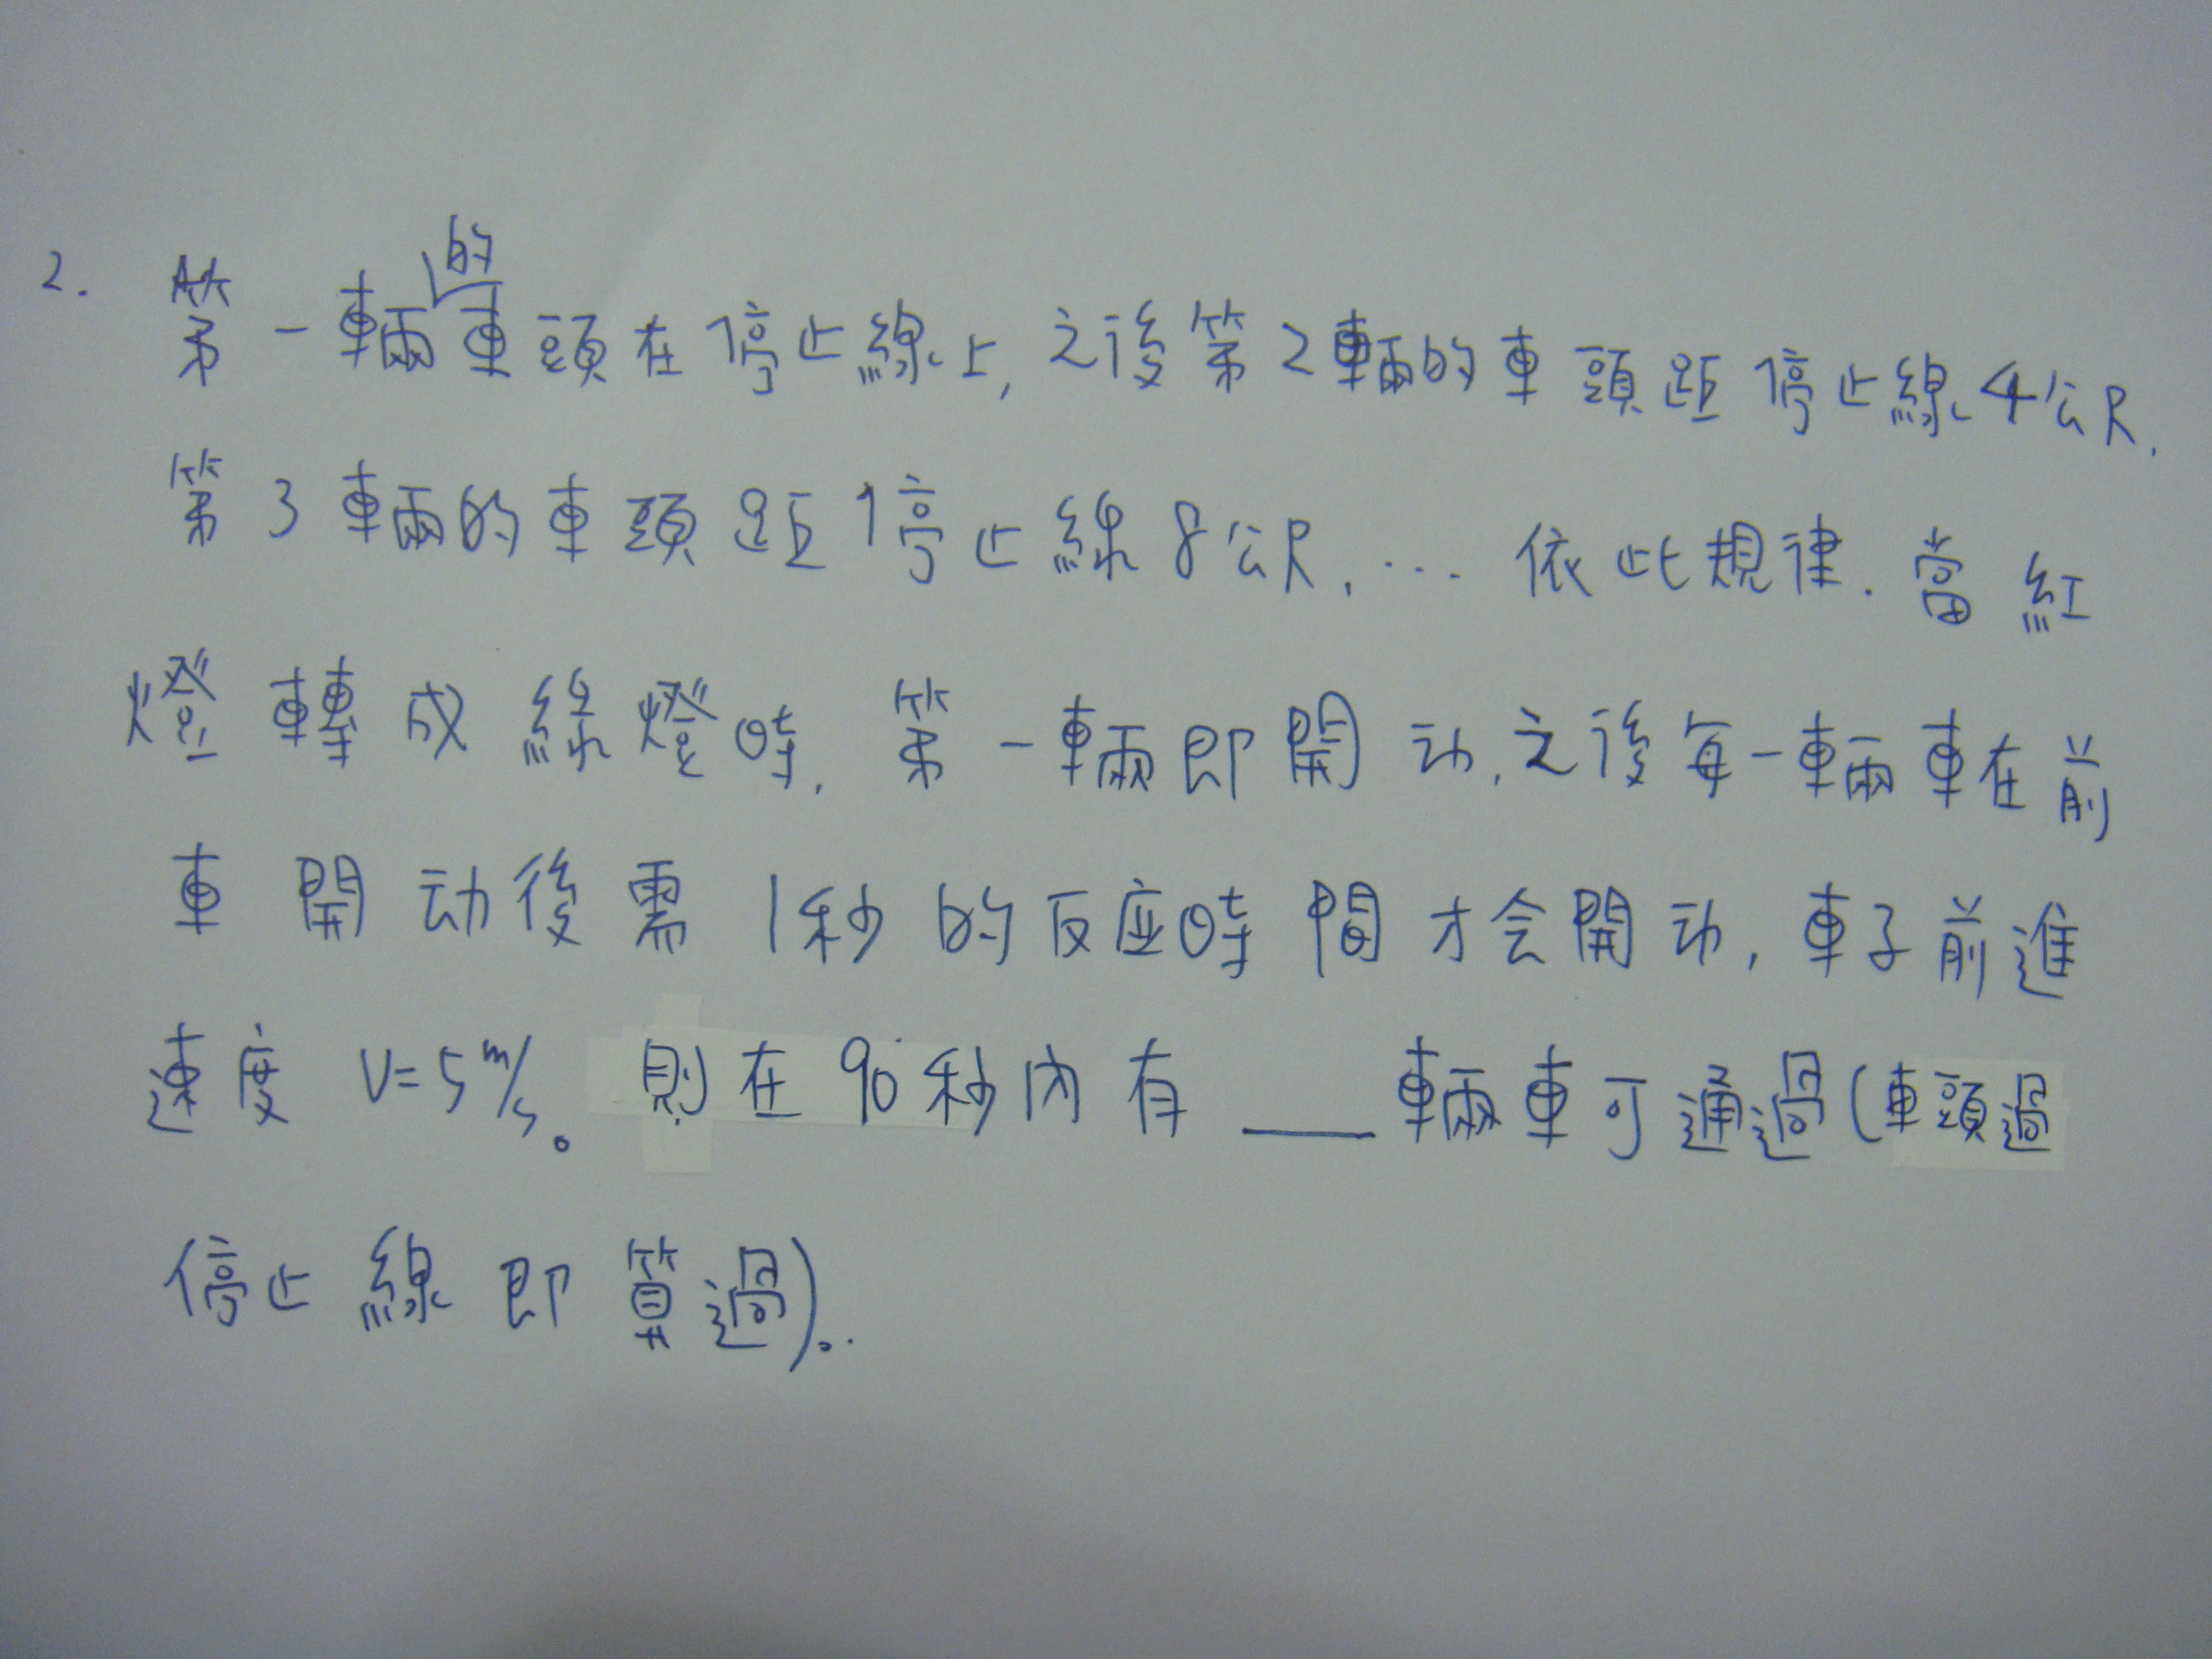 2. 第一輛的車頭在停止線上,之後第2輛的車頭距停止線4公尺,
第3輛的車頭距停止線8公尺,…依此規律.當紅
燈轉成綠燈時,第一輛即開动,之後每一輛車在前
車開动後需1秒的反应時間才会開动,車子前進
速度 V=5m/s。則在90秒內有___輛車可通過(車頭過
停止線即算過)。